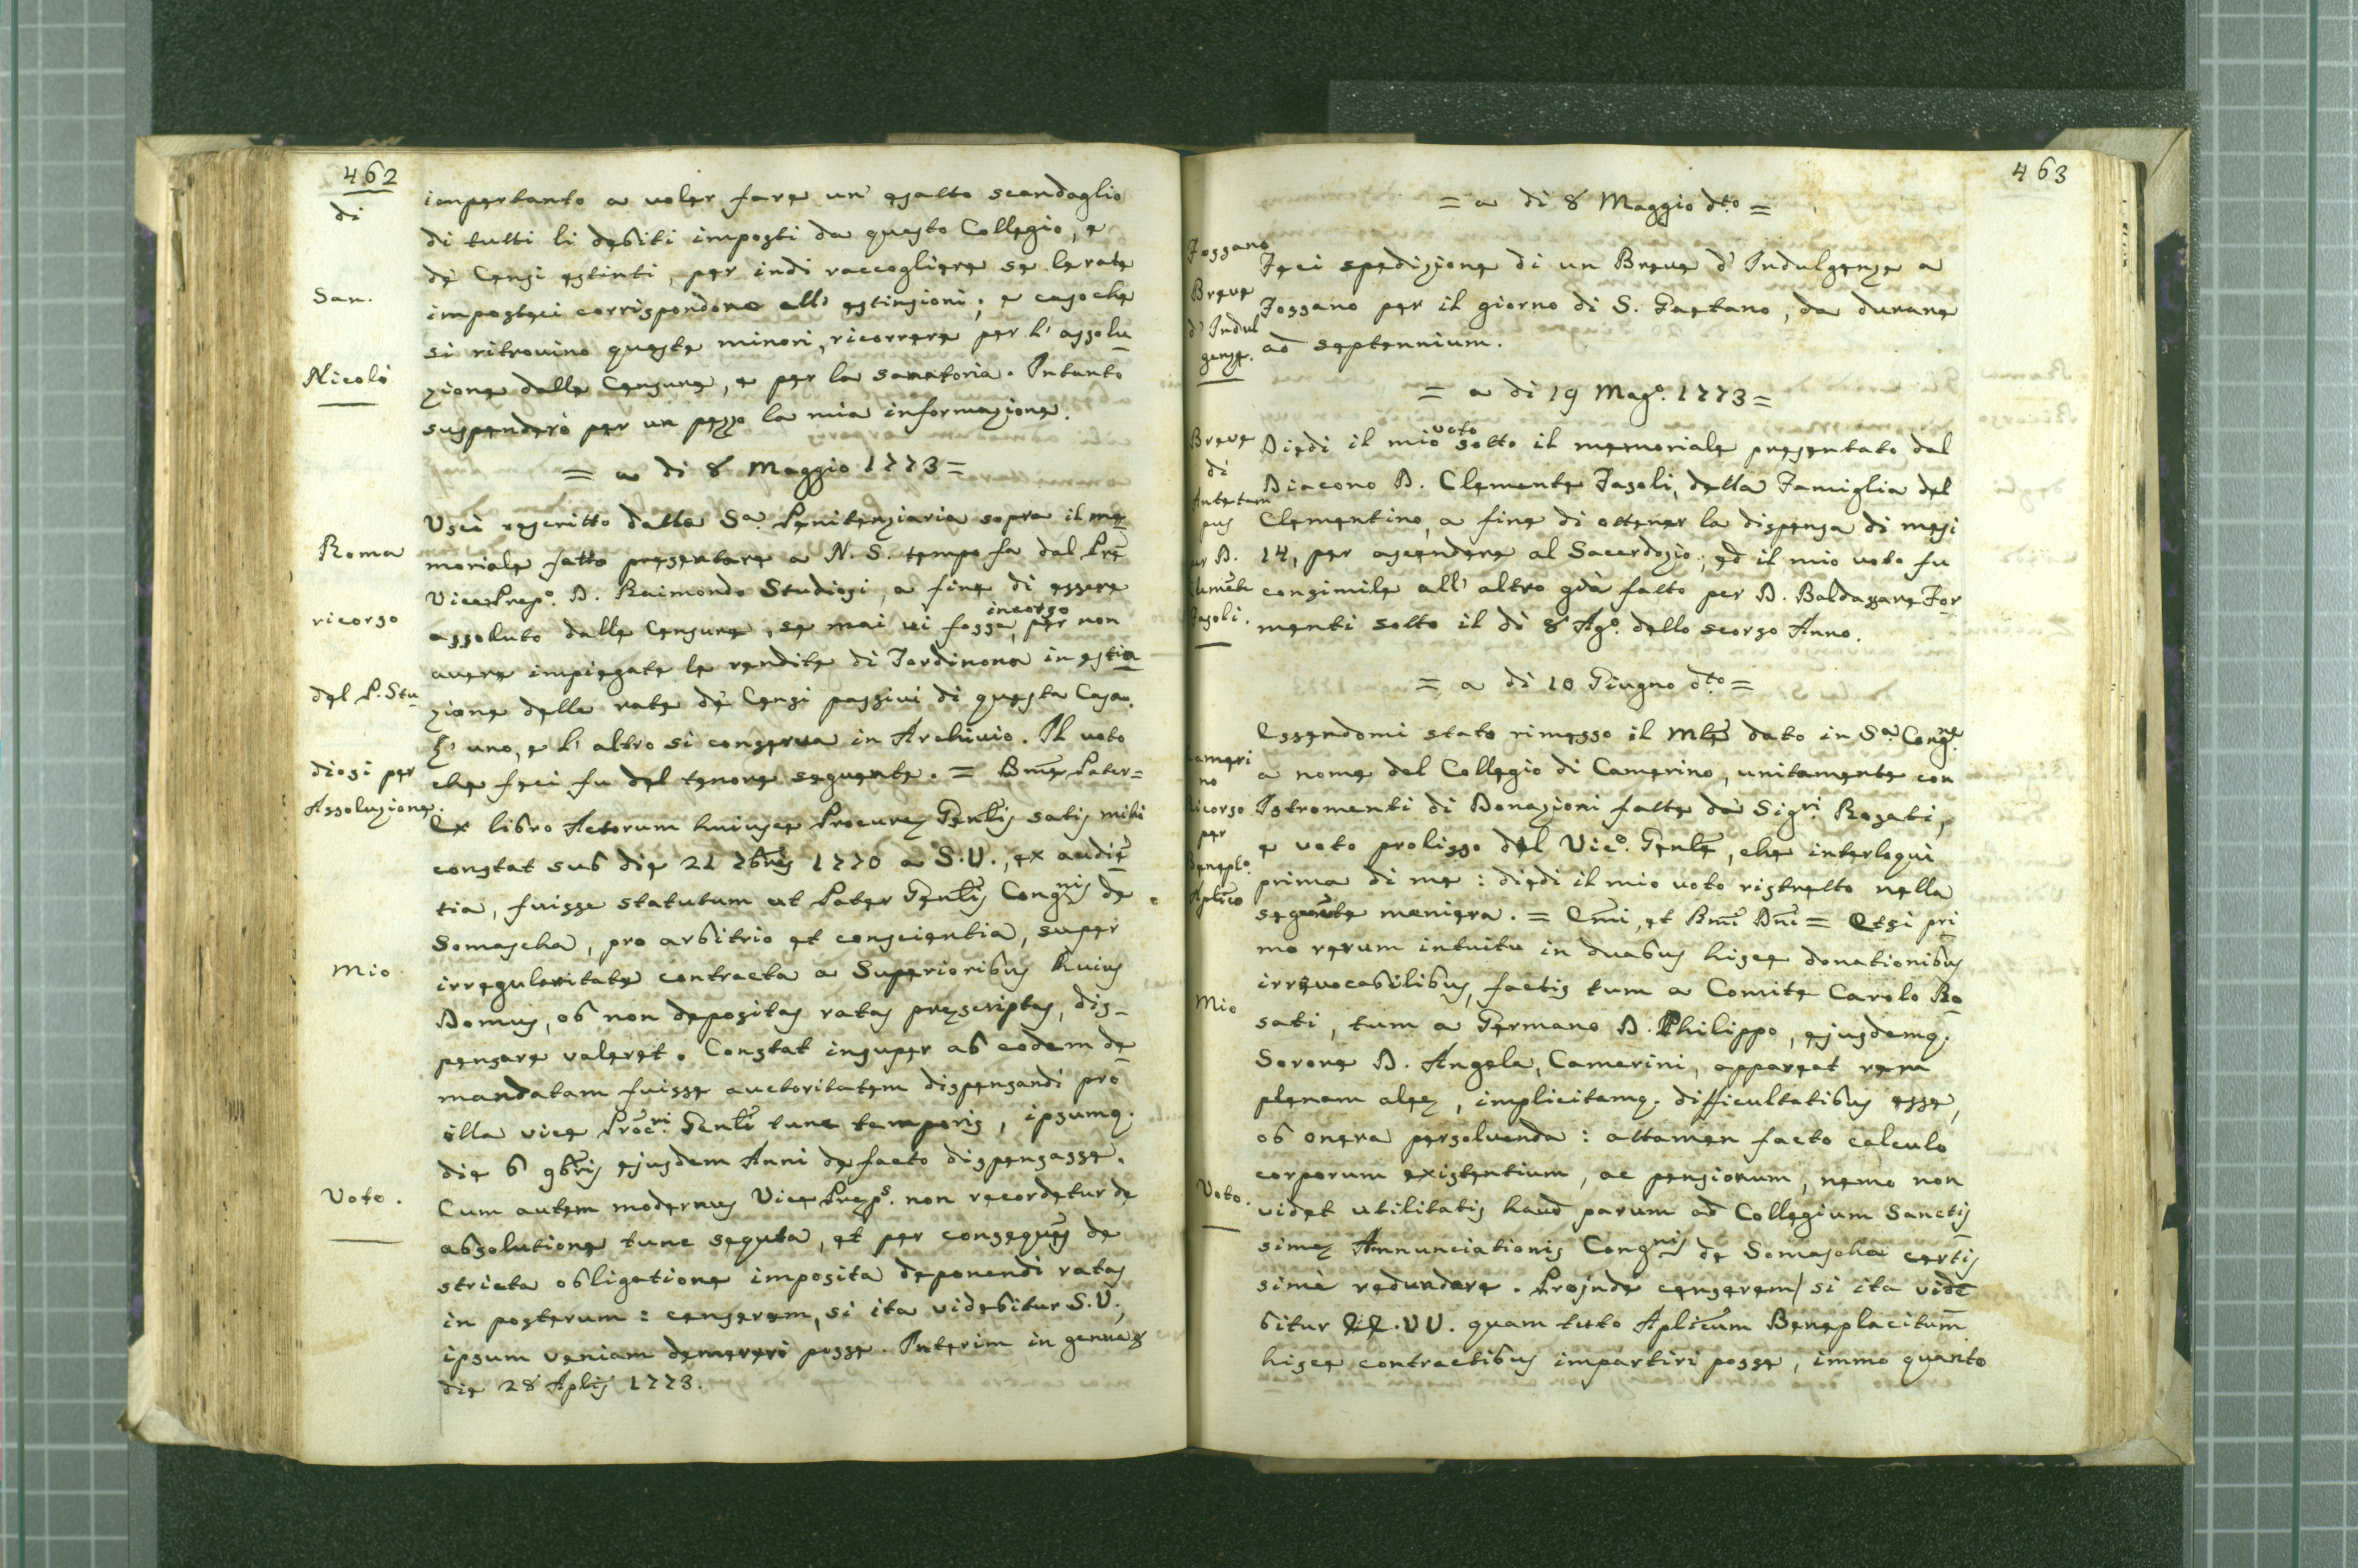 462
di
San.
Nicolò
impertanto a voler fare un' esatto scandaglio
di tutti li debiti imposti da questo Collegio, e
de' Censi estinti, per indi raccogliere se le rate
imposteci corrispondono all' estinsioni; e caso che
si ritrovino queste minori, ricorrere per l' assolu
zione dalle Censure, e per la sanatoria. Intanto
suspenderò per un pezzo la mia informazione.
= a dì 8 Maggio 1773 =
Roma
ricorso
del P. Stu
diosi per
Assoluzione.
Uscì rescritto dalla Sa. Penitenziaria sopra il me
moriale fatto presentare a N. S. tempo fa dal Prē
Vice Prepo. D. Raimondo Studiosi, a fine di essere
assoluto dalle Censure, se mai vi fosse incorso, per non
avere impiegate le rendite di Tordinona in estin
zione delle rate de' Censi passivi di questa Casa.
L' uno, e l' altro si conserva in Archivio. Il voto
che feci fu del tenore seguente. = Bmē Pater =
Ex libro Actorum huiusce Procuræ Genlīs satis mihi
constat sub die 21 7brīs 1770 a S.V., ex audiē
tia, fuisse statutum ut Pater Genlīs Congnis de
Somascha, pro arbitrio et conscientia, super
Mio
irregularitate contracta a Superioribus huius
Domus, ob non depositas ratas præscriptas, dis-
pensare valeret. Constat insuper ab eodem de
mandatam fuisse auctoritatem dispensandi pro
illa vice Procri. Genlī tunc temporis, ipsumq.
die 6 9brīs ejusdem Anni de facto dispensasse.
Voto.
Cum autem modernus Vice Præps. non recordetur de
absolutione tunc sequta, et per consequēs de
stricta obligatione imposita deponendi ratas
in posterum: censerem, si ita videbitur S.V.,
ipsum veniam demereri posse. Interim in genua &
die 28 Aplīs 1773.
463
= a dì 8 Maggio dto. =
Fossano
Breve
d' Indul
genze.
Feci spedizione di un Breve d' Indulgenze a
Fossano per il giorno di S. Gaetano, da durare
ad septennium.
= a dì 19 Mago. 1773 =
Breve
di
Antetem
pus
per D.
Clemēte
Fasoli.
Diedi il mio voto sotto il memoriale presentato dal
Diacono D. Clemente Fasoli, della Famiglia del
Clementino, a fine di ottener la dispensa di mesi
14, per ascendere al Sacerdozio; ed il mio voto fu
consimile all' altro già fatto per D. Baldassare For
menti sotto il dì 8 Ago. dello scorso Anno.
= a dì 10 Giugno dto. =
Cameri
no
Ricorso
per
Beneplo.
Aplīco
Essendomi stato rimesso il Mlē dato in Sa. Congne.
a nome del Collegio di Camerino, unitamente con
Istromenti di Donazioni fatte da' Sigri. Rosati,
e voto prolisso del Vico. Genlē, che interloquì
prima di me: diedi il mio voto ristretto nella
seguēte maniera. = Emī, et Rmī Dnī = Etsi pri
mo rerum intuitu in duabus hisce donationibus
Mio
irrevocabilibus, factis tum a Comite Carolo Ro
sati, tum a Germano D. Philippo, ejusdemq.
Sorore D. Angela, Camerini, appareat rem
plenam aleæ, implicitamq. difficultatibus esse,
ob onera persolvenda: attamen facto calculo
corporum existentium, ac pensionum, nemo non
Voto.
videt utilitatis haud parum ad Collegium Sanctis
simæ Annunciationis Congnis de Somascha certis
simè redundare. Projnde censerem, si ita vide
bitur EE.VV. quam tuto Aplicūm Beneplacitum
hisce contractibus impartiri posse, immo quanto